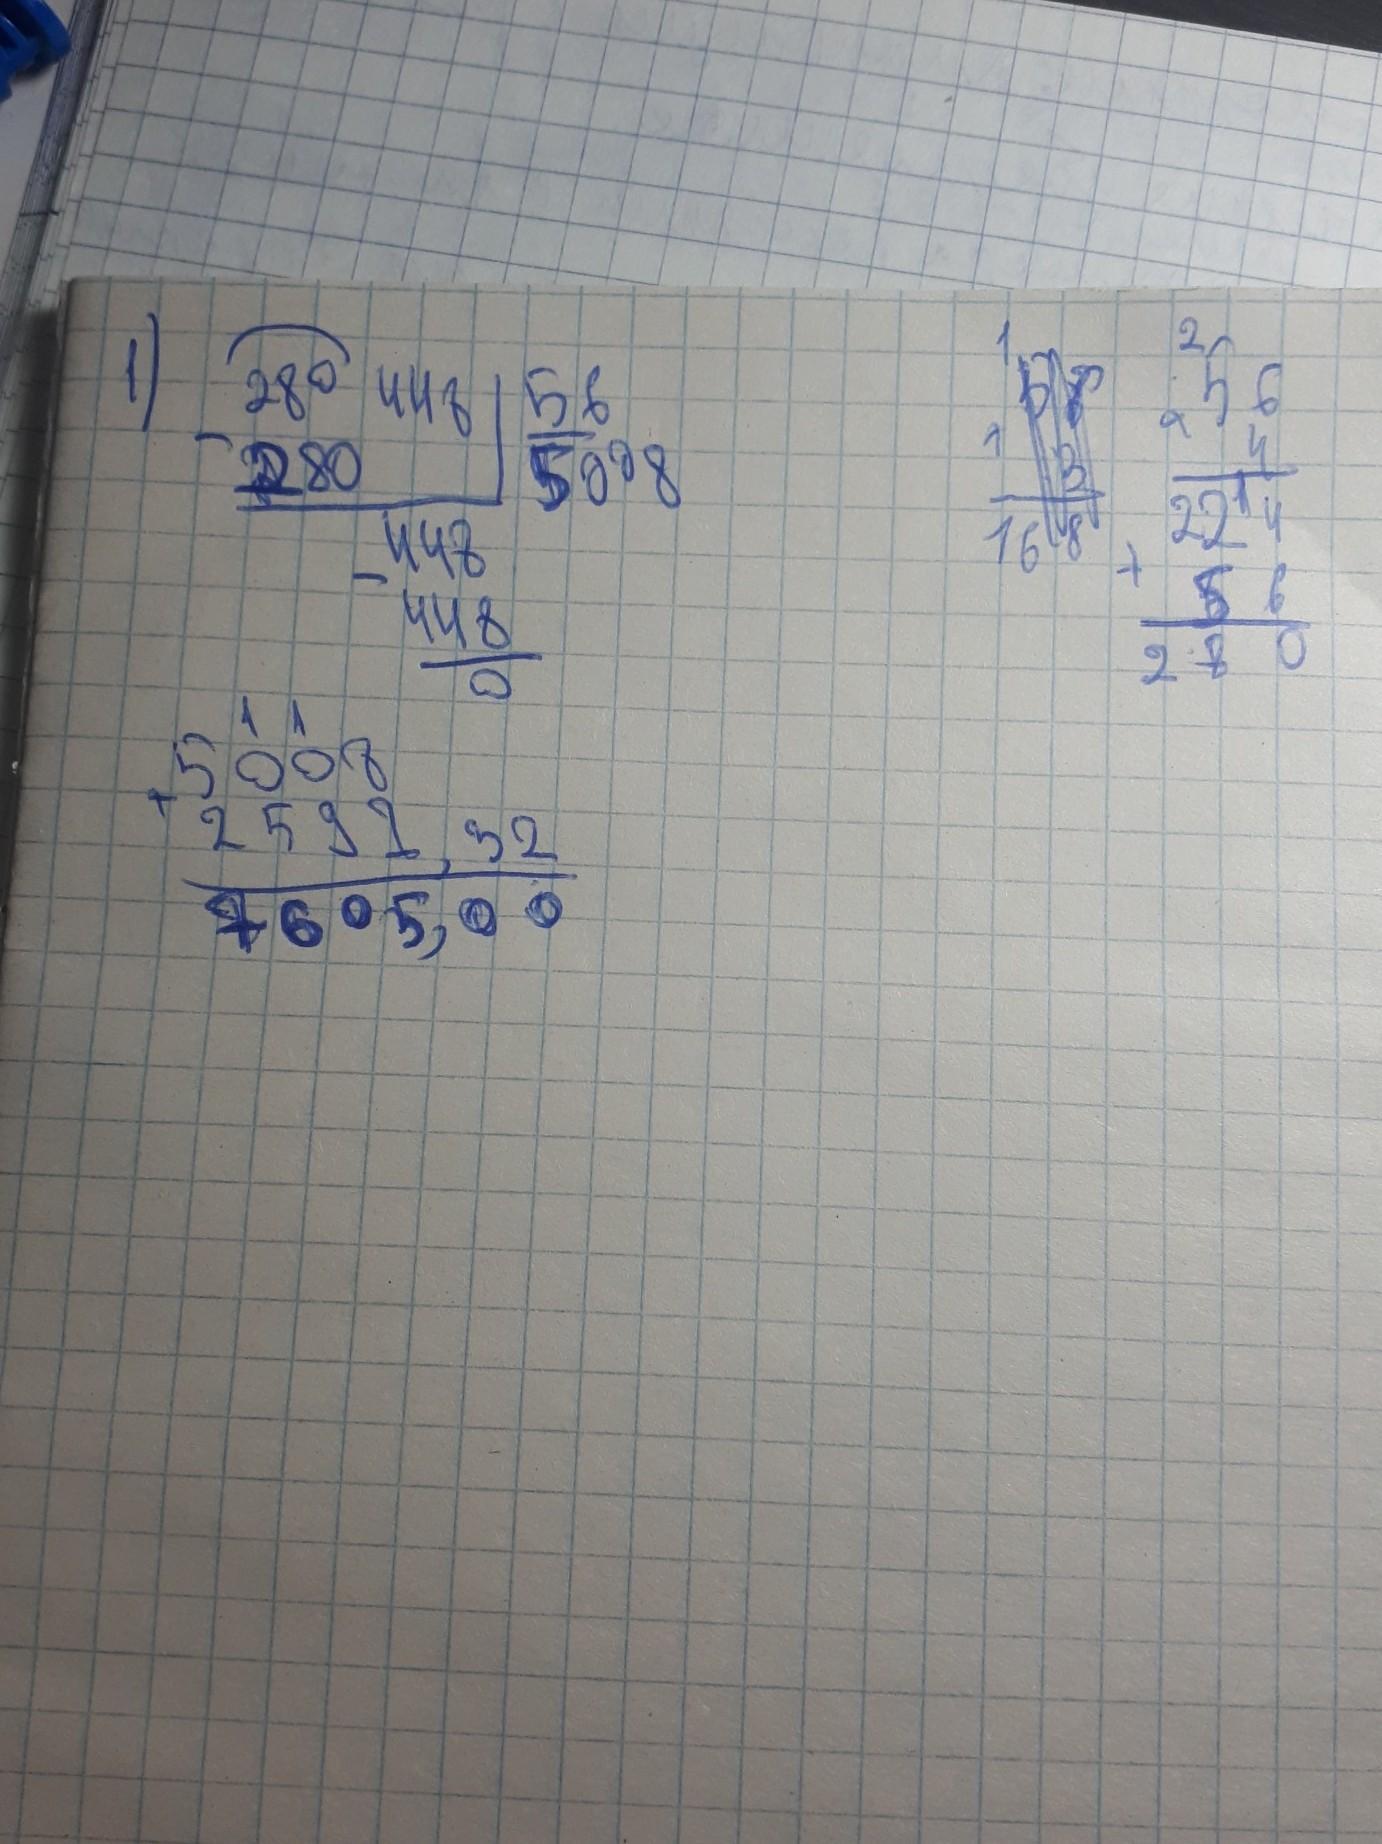 1) 280 448 | 56
- 280 | 5008
- 448
448
0
1
58
1
3
168
2
56
x 4
22¹4
+ 56
280
1 1
5008
+ 2592,32
7605,00